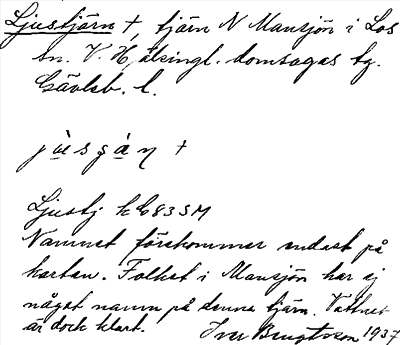 Ljustjärn †, tjärn N Mansjön i Los
sn. V. Hälsingl. domsagas tg.
Gävleb. l.
Ljustj k 683 SM
Namnet förekommer endast på
kartan. Folket i Mansjön har ej
något namn på denna tjärn. Vattnet
är dock klart. Iver Bengtsson 1937